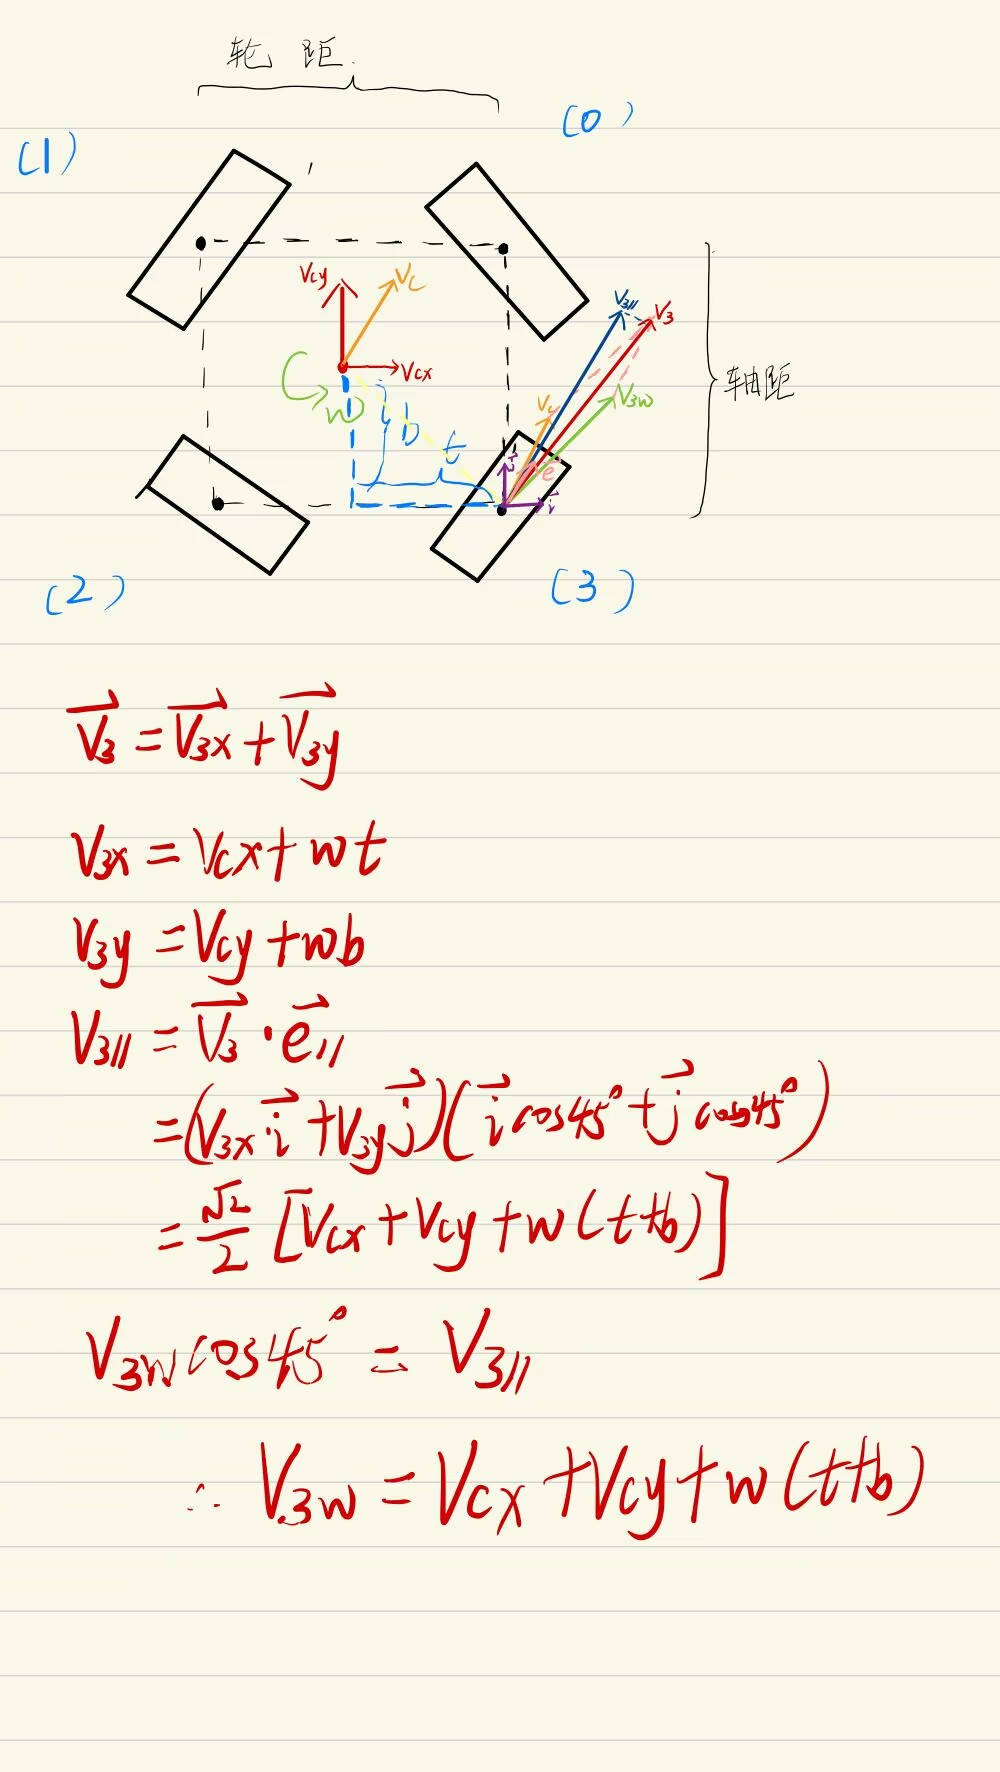 轮距
(0)
(1)
Vcy
Vc
V3//
V3
C
Vcx
w
V3w
轴距
b
t
e
j
i
(2)
(3)
V⃗3 = V⃗3x + V⃗3y
V3x = Vcx + wt
V3y = Vcy + wb
V3// = V⃗3 · e⃗//
= (V3x i⃗ + V3y j⃗)(i⃗ cos45° + j⃗ cos45°)
= √2/2 [Vcx + Vcy + w(t+b)]
V3w cos45° = V3//
∴ V3w = Vcx + Vcy + w(t+b)